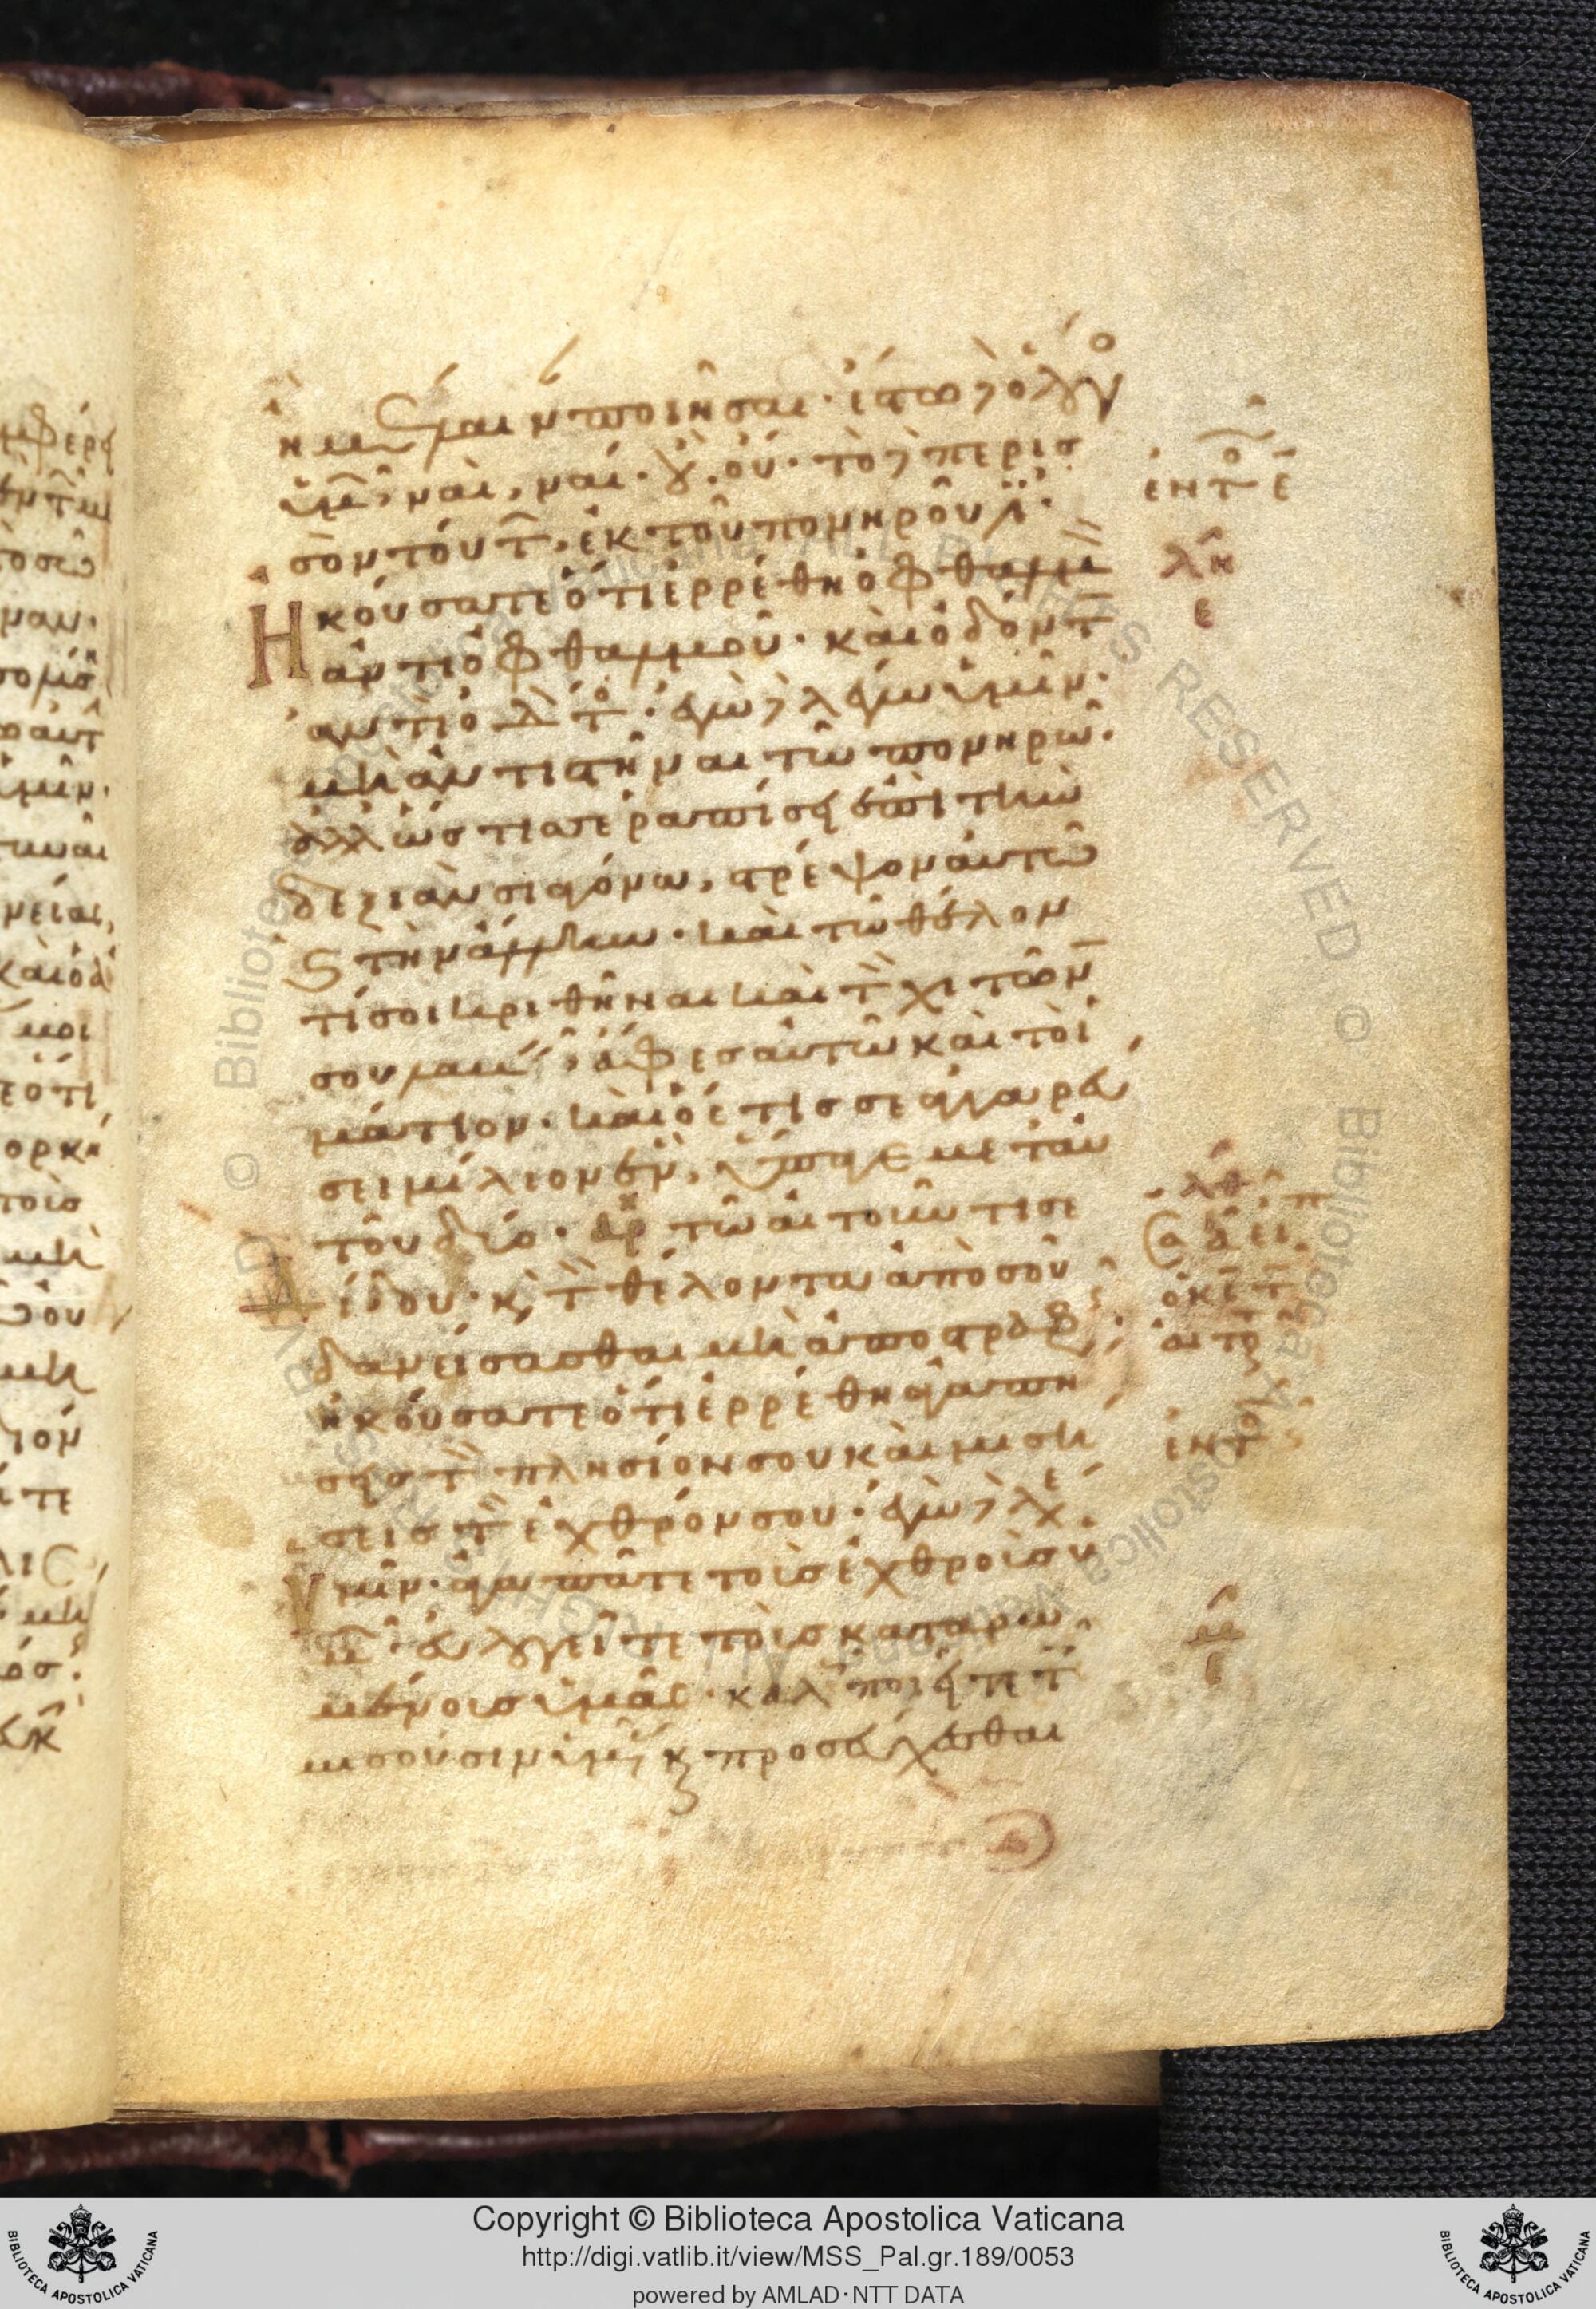 ἢ μέλαιναν ποιῆσαι· ἔστω δὲ ὁ λόγος
ὑμῶν, ναὶ, ναί· οὒ. οὔ· τὸ δὲ περισ
σὸν τούτων, ἐκ τοῦ πονηροῦ ἐστιν·
Ἠκούσατε ὅτι ἐρρέθη ὀφθαλμὸν
ἀντὶ ὀφθαλμοῦ· καὶ ὀδόντα
ἀντὶ ὀδόντος· ἐγὼ δὲ λέγω ὑμῖν·
μὴ ἀντιστῆναι τῶ πονηρῶ·
ἀλλ' ὅστις σε ραπίσει ἐπὶ τὴν
δεξιὰν σιαγόνα, στρέψον αὐτῶ
καὶ τὴν ἄλλην· καὶ τῶ θέλον
τί σοι κριθῆναι καὶ τὸν χιτῶνα
σου λαβεῖν, ἄφες αὐτῶ καὶ τὸ ἱ
μάτιον· καὶ ὅστις σε ἀγγαρεύ
σει μίλιον ἓν, ὕπαγε μετ' αὐ
τοῦ δύο· τῶ αἰτοῦντί σε
δίδου· καὶ τὸν θέλοντα ἀπὸ σοῦ
δανείσασθαι μὴ ἀποστραφῇς·
ἠκούσατε ὅτι ἐρρέθη ἀγαπή
σεις τὸν πλησίον σου καὶ μιση
σεις τὸν ἐχθρόν σου· ἐγὼ δὲ λέγω
ὑμῖν· ἀγαπᾶτε τοὺς ἐχθροὺς ὑ
μῶν· εὐλογεῖτε τοὺς καταρω
μένους ὑμᾶς· καλῶς ποιεῖτε τοὺς
μισοῦσιν ὑμᾶς καὶ προσεύχεσθαι
λη
ε
Copyright © Biblioteca Apostolica Vaticana
http://digi.vatlib.it/view/MSS_Pal.gr.189/0053
powered by AMLAD·NTT DATA
BIBLIOTECA APOSTOLICA VATICANA
BIBLIOTECA APOSTOLICA VATICANA